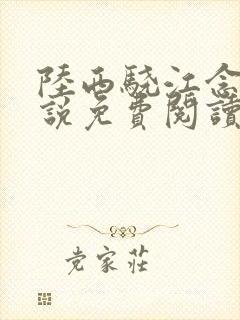 陸西驍江念
說免費閱讀
党家莊